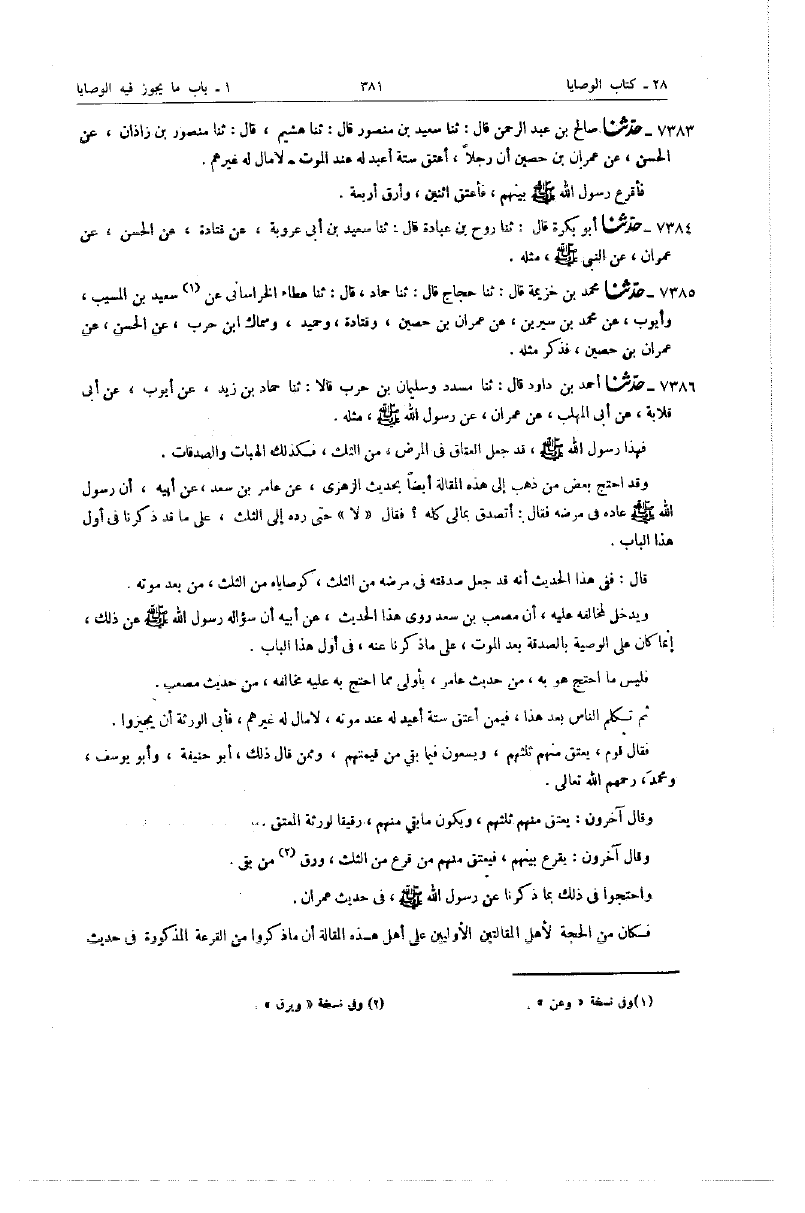 ٢٨ ـ كتاب الوصايا ٣٨١ ١ ـ باب ما يجوز فيه الوصايا
٧٣٨٣ ـ حدثنا صالح بن عبد الرحمن قال : ثنا سعيد بن منصور قال : ثنا هشيم ، قال : ثنا منصور بن زاذان ، عن
الحسن ، عن عمران بن حصين أن رجلاً ، أعتق ستة أعبد له عند الموت ـ لامال له غيرهم .
فأقرع رسول الله ﷺ بينهم ، فأعتق اثنين ، وأرق أربعة .
٧٣٨٤ ـ حدثنا أبو بكرة قال : ثنا روح بن عبادة قال : ثنا سعيد بن أبى عروبة ، عن قتادة ، عن الحسن ، عن
عمران ، عن النبى ﷺ ، مثله .
٧٣٨٥ ـ حدثنا محمد بن خزيمة قال : ثنا حجاج قال : ثنا حماد ، قال : ثنا عطاء الخراسانى عن (١) سعيد بن المسيب ،
وأيوب ، عن محمد بن سيرين ، عن عمران بن حصين ، وقتادة ، وحميد ، وسماك ابن حرب ، عن الحسن ، عن
عمران بن حصين ، فذكر مثله .
٧٣٨٦ ـ حدثنا أحمد بن داود قال : ثنا مسدد وسليمان بن حرب قالا : ثنا حماد بن زيد ، عن أيوب ، عن أبى
قلابة ، عن أبى المهلب ، عن عمران ، عن رسول الله ﷺ ، مثله .
فهذا رسول الله ﷺ ، قد جعل العتاق فى المرض ، من الثلث ، فكذلك الهبات والصدقات .
وقد احتج بعض من ذهب إلى هذه المقالة أيضاً بحديث الزهرى ، عن عامر بن سعد ، عن أبيه ، أن رسول
الله ﷺ عاده فى مرضه فقال : أتصدق بمالى كله ؟ فقال « لا » حتى رده إلى الثلث ، على ما قد ذكرنا فى أول
هذا الباب .
قال : ففى هذا الحديث أنه قد جعل صدقته فى مرضه من الثلث ، كوصاياه من الثلث ، من بعد موته .
ويدخل لمخالفه عليه ، أن مصعب بن سعد روى هذا الحديث ، عن أبيه أن سؤاله رسول الله ﷺ عن ذلك ،
إنما كان على الوصية بالصدقة بعد الموت ، على ماذكرنا عنه ، فى أول هذا الباب .
فليس ما احتج هو به ، من حديث عامر ، بأولى مما احتج به عليه مخالفه ، من حديث مصعب .
ثم تكلم الناس بعد هذا ، فيمن أعتق ستة أعبد له عند موته ، لامال له غيرهم ، فأبى الورثة أن يجيزوا .
فقال قوم ، يعتق منهم ثلثهم ، ويسعون فيما بقي من قيمتهم ، وممن قال ذلك ، أبو حنيفة ، وأبو يوسف ،
ومحمد ، رحمهم الله تعالى .
وقال آخرون : يعتق منهم ثلثهم ، ويكون مابقي منهم ، رقيقا لورثة المعتق .
وقال آخرون : يقرع بينهم ، فيعتق منهم من قرع من الثلث ، ورق (٢) من بقى .
واحتجوا فى ذلك بما ذكرنا عن رسول الله ﷺ ، فى حديث عمران .
فكان من الحجة لأهل المقالتين الأوليين على أهل هذه المقالة أن ماذكروا من القرعة المذكورة فى حديث
(١) وفى نسخة « وعن » . (٢) وفى نسخة « ويرق » .